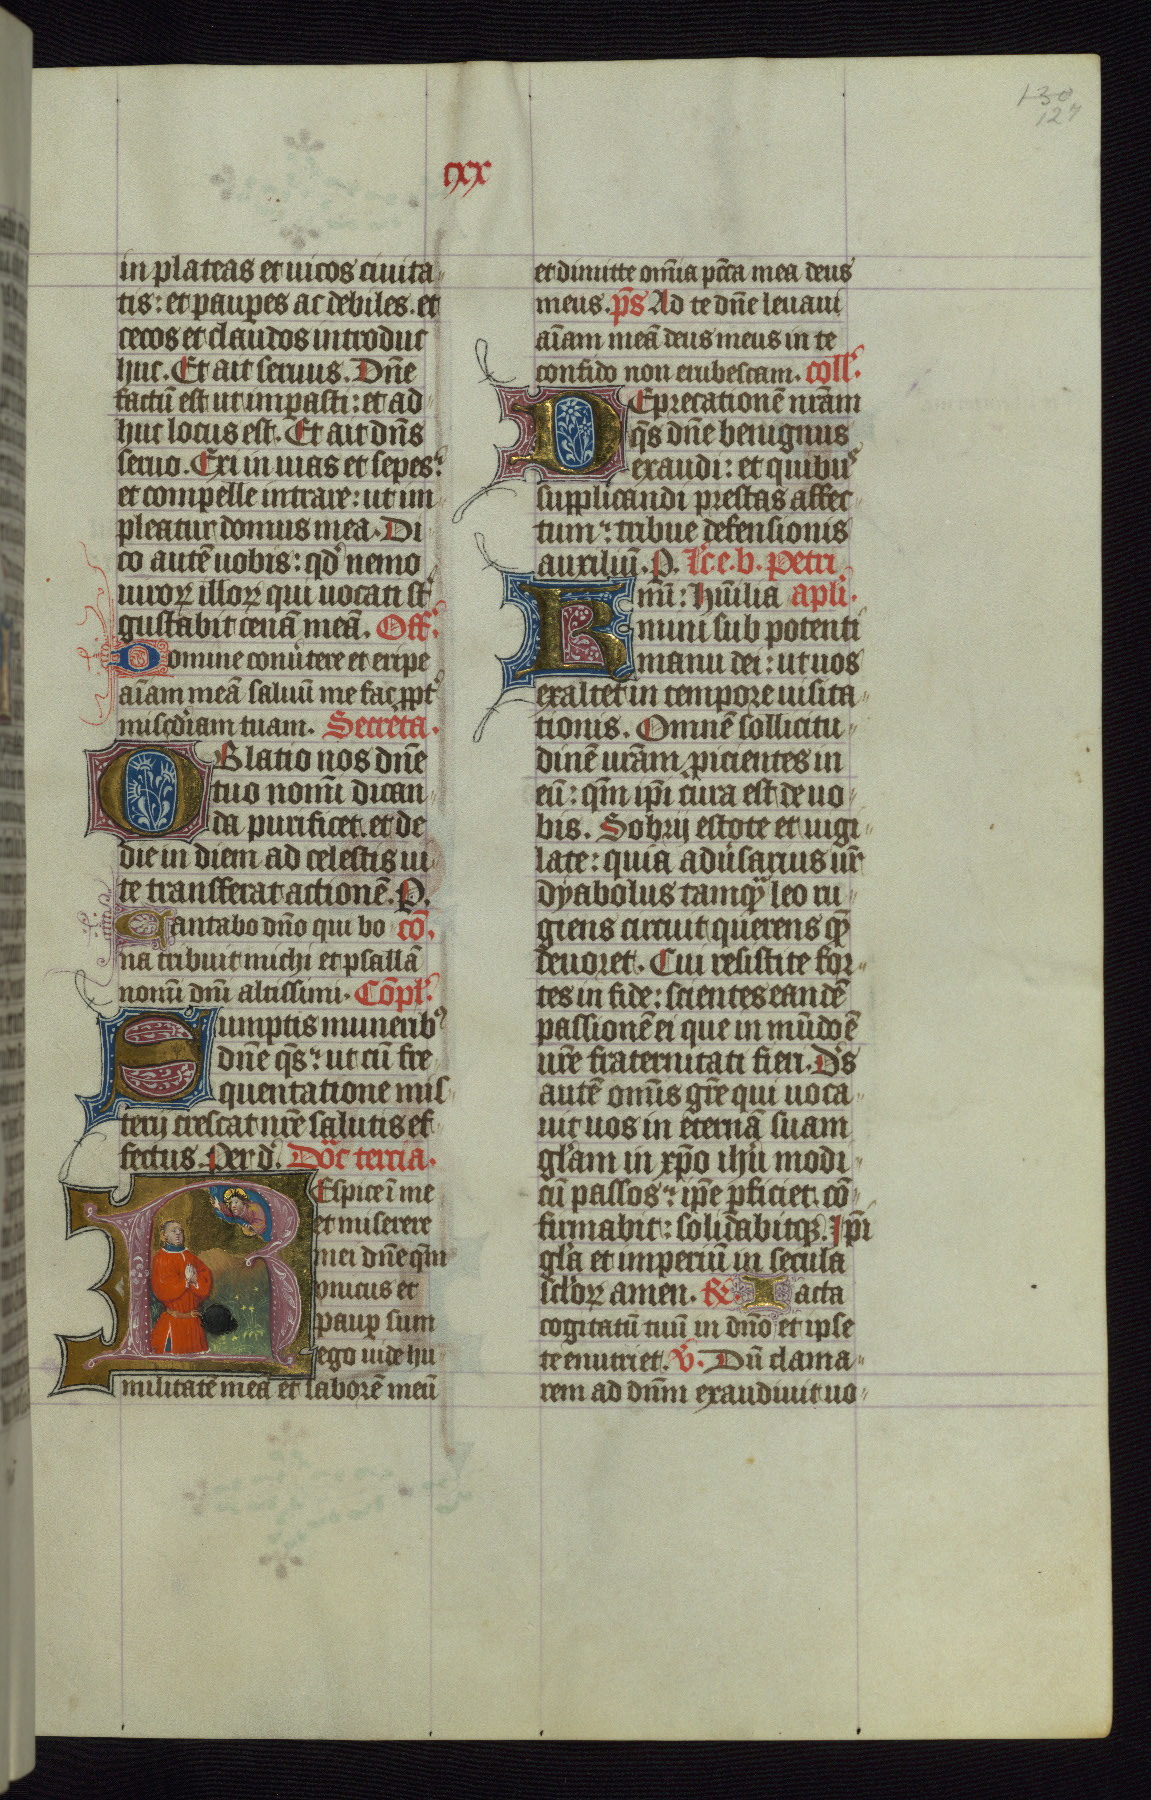 130
127
cxx
in plateas et uicos ciuita
tis: et paup̲es ac debiles. et
cecos et claudos introduc
huc. Et ait seruus. Dn̄e
factū est ut imp̲asti: et ad
huc locus est. Et ait dn̄s
seruo. Exi in uias et sepes:
et compelle intrare: ut im
pleatur domus mea. Di
co autē uobis: qd̓ nemo
uiroꝝ illoꝝ qui uocati st̄
gustabit cenā meā. Off.
Domine conu̓tere et eripe
aīam meā saluū me fac ꝓpt̓
mis̄cdiam tuam. Secreta.
Oblatio nos dn̄e
tuo nomī dican
da purificet. et de
die in diem ad celestis ui
te transferat actionē. P.
Cantabo dn̄o qui bo cō.
na tribuit michi et psallā
nomī dn̄i altissimi. Cōpl̓.
Sumptis munerib᷒
dn̄e qs̄: ut cū fre
quentatione mis
terij crescat nr̄e salutis ef
fectus. Per d̓. Dōc tercia.
Respice ī me
et miserere
mei dn̄e qm̄
onicus et
paup̲ sum
ego uide hu
militatē meā et laborē meū
et dimitte om̄ia pc̄ca mea deus
meus. ps̄ Ad te dn̄e leuaui
aīam meā deus meus in te
confido non erubescam. coll̓.
Deprecationē nr̄am
qs̄ dn̄e benignus
exaudi: et quibu᷒
supplicandi prestas affec
tum: tribue defensionis
auxiliū. P. Lc̄. e. b. petri
Rmī: Hūilia apli.
mini sub potenti
manu dei: ut uos
exaltet in tempore uisita
tionis. Omnē sollicitu
dinē ur̄am ꝓicientes in
eū: qm̄ ip̄i cura est de uo
bis. Sobrij estote et uigi
late: quia adu̓sarius ur̄
dyabolus tamqͣ leo ru
giens circuit querens qm̄
deuoret. Cui resistite for
tes in fide: scientes eandē
passionē ei que in mūdo ē
ur̄e fraternitati fieri. Ds̄
autē om̄is gr̄e qui uoca
uit uos in eternā suam
gl̓am in xp̄o ihū modi
cū passos: ip̄e ꝑficiet. cō
firmabit: solidabitqꝫ. Ip̄i
gl̓a et imperiū in secula
sc̓loꝝ amen. R̄. Iacta
cogitatū tuū in dn̄o et ipse
te enutriet. V̄. Dū clama
rem ad dn̄m exaudiuit uo